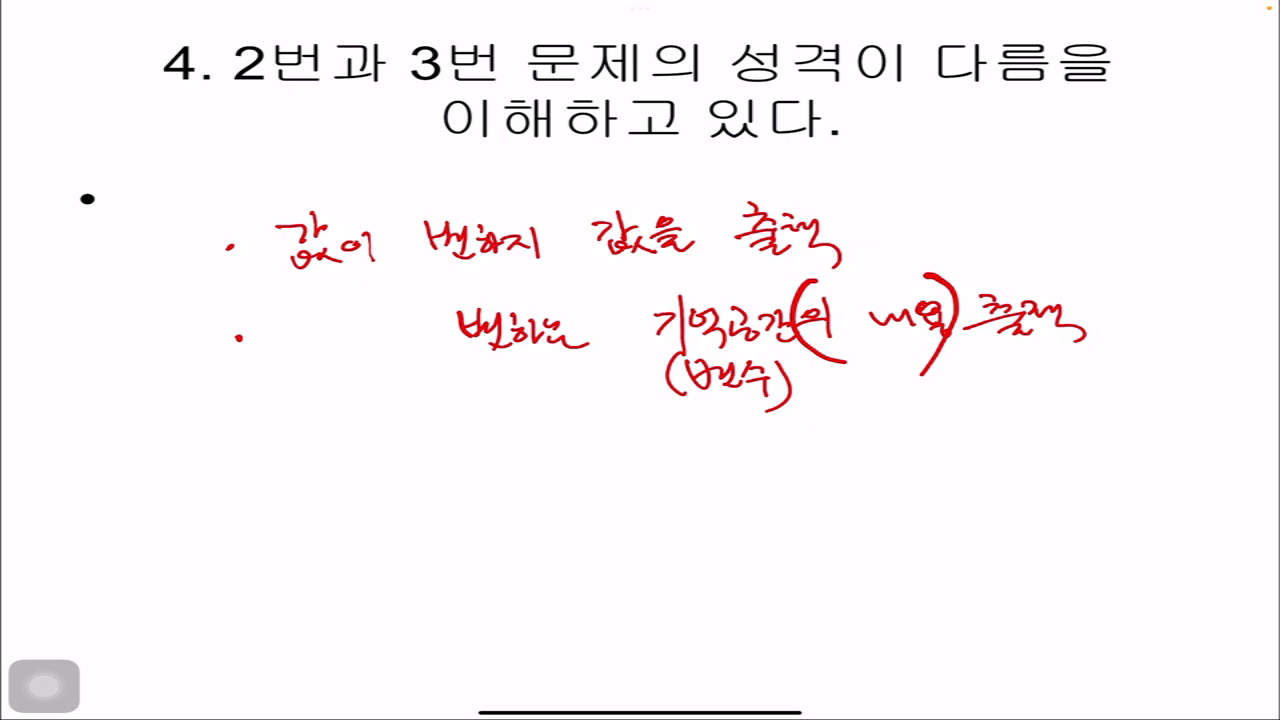 4. 2번과 3번 문제의 성격이 다름을
이해하고 있다.
• 
· 값이 변하지 값을 출력
· 변하는 기억공간(의 내열) 출력
(변수)